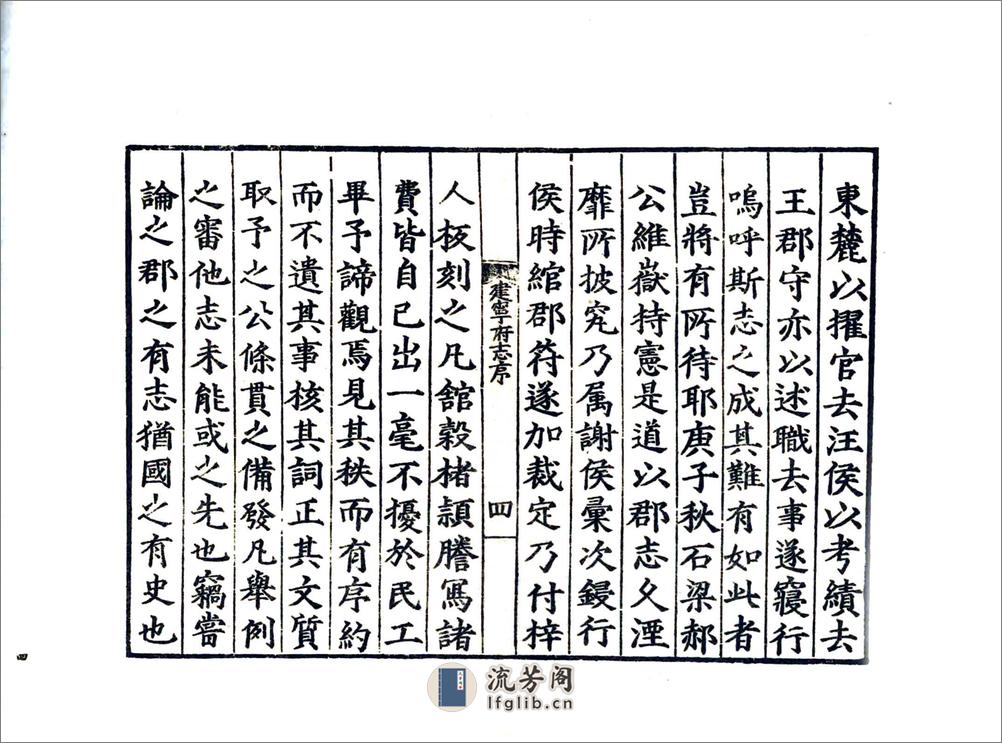 東麓以擢官去汪侯以考績去
王郡守亦以述職去事遂寢行
嗚呼斯志之成其難有如此者
豈將有所待耶庚子秋石梁郝
公維嶽持憲是道以郡志久湮
靡所披究乃属謝侯彙次鋟行
侯時綰郡符遂加裁定乃付梓
建寧府志序
四
人板刻之凡舘穀楮頴謄寫諸
費皆自已出一毫不擾於民工
畢予諦觀焉見其秩而有序約
而不遺其事核其詞正其文質
取予之公條貫之備發凡舉例
之審他志未能或之先也竊嘗
論之郡之有志猶國之有史也
四
流芳阁
lfglib.cn